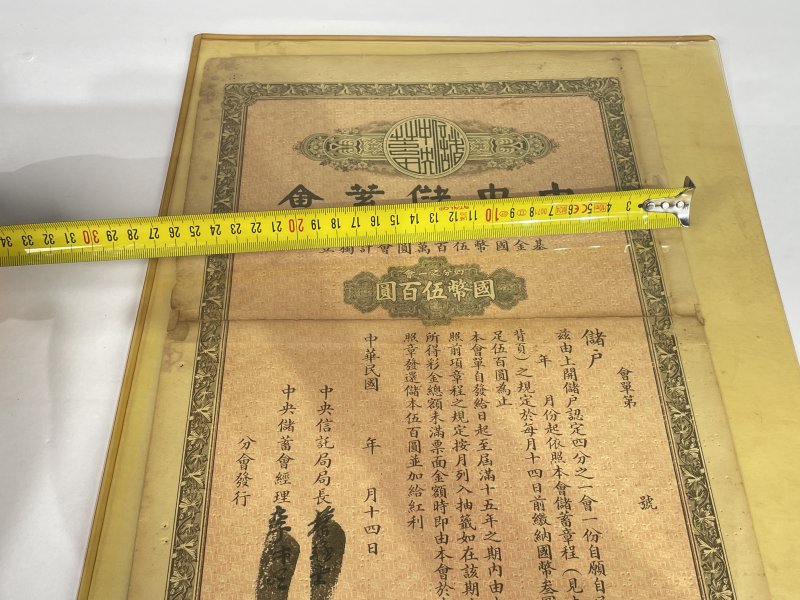 中央儲蓄會
3 4 5 6 7 8 9 10 11 12 13 14 15 16 17 18 19 20 21 22 23 24 25 26 27 28 29 30 31 32 33 34
基金國幣伍百萬圓會計獨立
四分之一會
國幣伍百圓
會單第 號
儲戶
茲由上開儲戶認定四分之一會一份自願自
年 月份起依照本會儲蓄章程（見
背頁）之規定於每月十四日前繳納國幣叁
足伍百圓為止
本會單自發給日起至屆滿十五年之期內由
照前項章程之規定按月列入抽籤如在該期
所得彩金總額未滿票面金額時即由本會於
照章發還儲本伍百圓並加給紅利
中華民國 年 月十四日
中央信託局局長
中央儲蓄會經理
分會發行